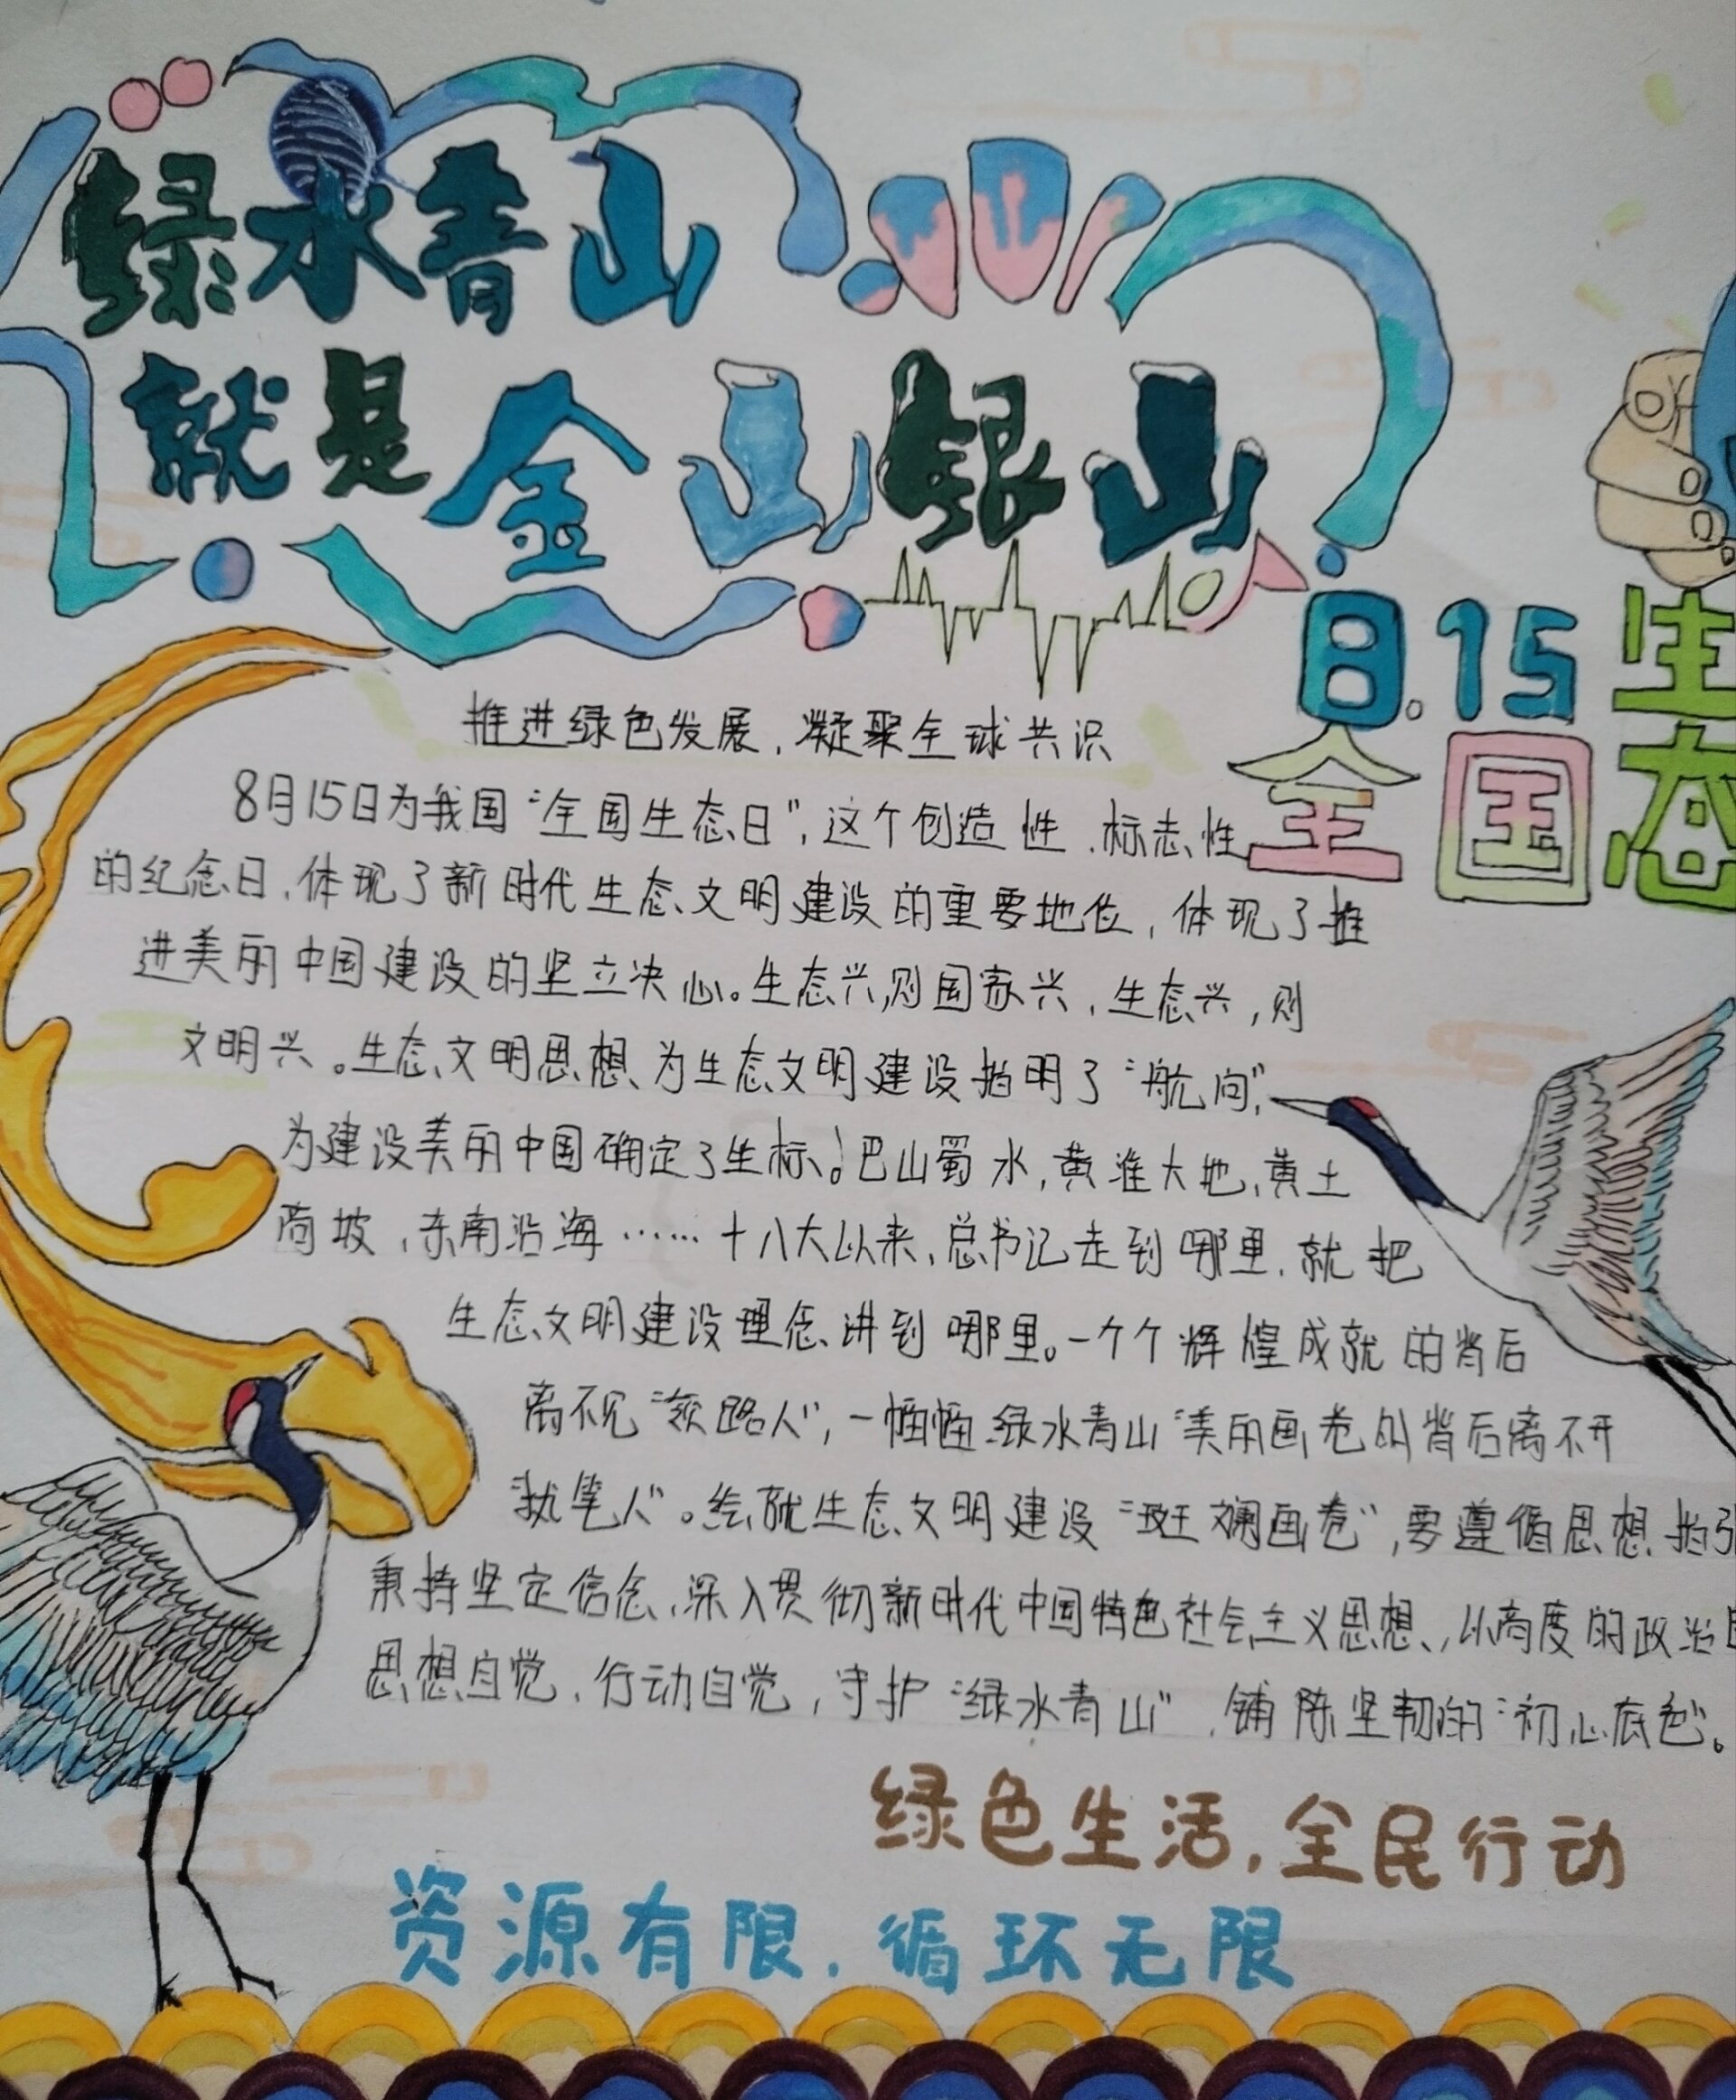 绿水青山
就是金山银山
8.15 生态
全国
推进绿色发展，凝聚全球共识
8月15日为我国“全国生态日”，这个创造性、标志性
的纪念日，体现了新时代生态文明建设的重要地位，体现了推
进美丽中国建设的坚立决心。生态兴，则国家兴，生态兴，则
文明兴。生态文明思想为生态文明建设指明了“航向”，
为建设美丽中国确定了坐标！巴山蜀水，黄淮大地，黄土
高坡，东南沿海……十八大以来，总书记走到哪里，就把
生态文明建设理念讲到哪里。一个个辉煌成就的背后
离不见“领路人”，一幅幅绿水青山“美丽画卷的背后离不开
“执笔人”。绘就生态文明建设“斑斓画卷”，要遵循思想指引
秉持坚定信念，深入贯彻新时代中国特色社会主义思想，以高度的政治
思想自觉，行动自觉，守护“绿水青山”，铺陈坚韧的“初心底色”。
绿色生活，全民行动
资源有限，循环无限